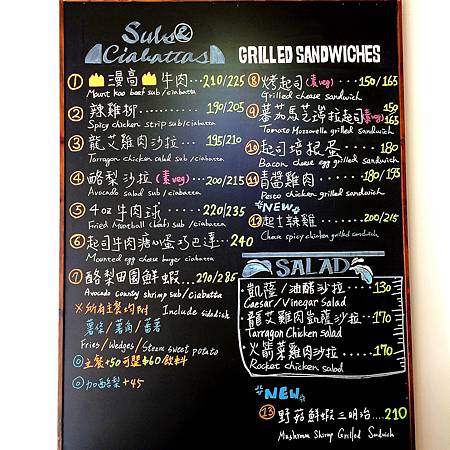 Subs &
Ciabattas
① 漫高 牛肉...210/225
Mount Koo beef sub/ciabatta
② 辣雞柳......190/205
Spicy chicken strip sub/ciabatta
③ 龍艾雞肉沙拉...195/210
Tarragon chicken salad sub/ciabatta
④ 酪梨沙拉(素veg)...200/215
Avocado salad sub/ciabatta
⑤ 4oz牛肉球......220/235
Fried Meatball beef sub/ciabatta
⑥ 起司牛肉滑蛋巧巴達...240
Mounted egg cheese burger ciabatta
⑦ 酪梨田園鮮蝦...270/285
Avocado County shrimp sub/ciabatta
×所有主餐均附 Include sidedish
薯條/薯角/蒸薯
Fries/Wedges/Steam sweet potato
◎主餐+50可墊$60飲料
◎加酪梨+45
GRILLED SANDWICHES
⑧ 烤起司(素veg)...150/165
Grilled cheese sandwich
⑨ 蕃茄馬芝瑞拉起司(素veg)150/165
Tomato Mozzarella grilled sandwich
⑩ 起司培根蛋......180
Bacon cheese egg grilled sandwich
⑪ 青醬雞肉......180/195
Pesto chicken grilled sandwich
NEW
⑫ 起士辣雞......200/215
Cheese spicy chicken grilled sandwich
SALAD
·凱薩/油醋沙拉...130
Caesar/Vinegar Salad
·龍艾雞肉凱薩沙拉...170
Tarragon Chicken salad
·火箭菜雞肉沙拉...170
Rocket chicken salad
NEW
⑬ 野菇鮮蝦三明治...210
Mushroom Shrimp Grilled Sandwich